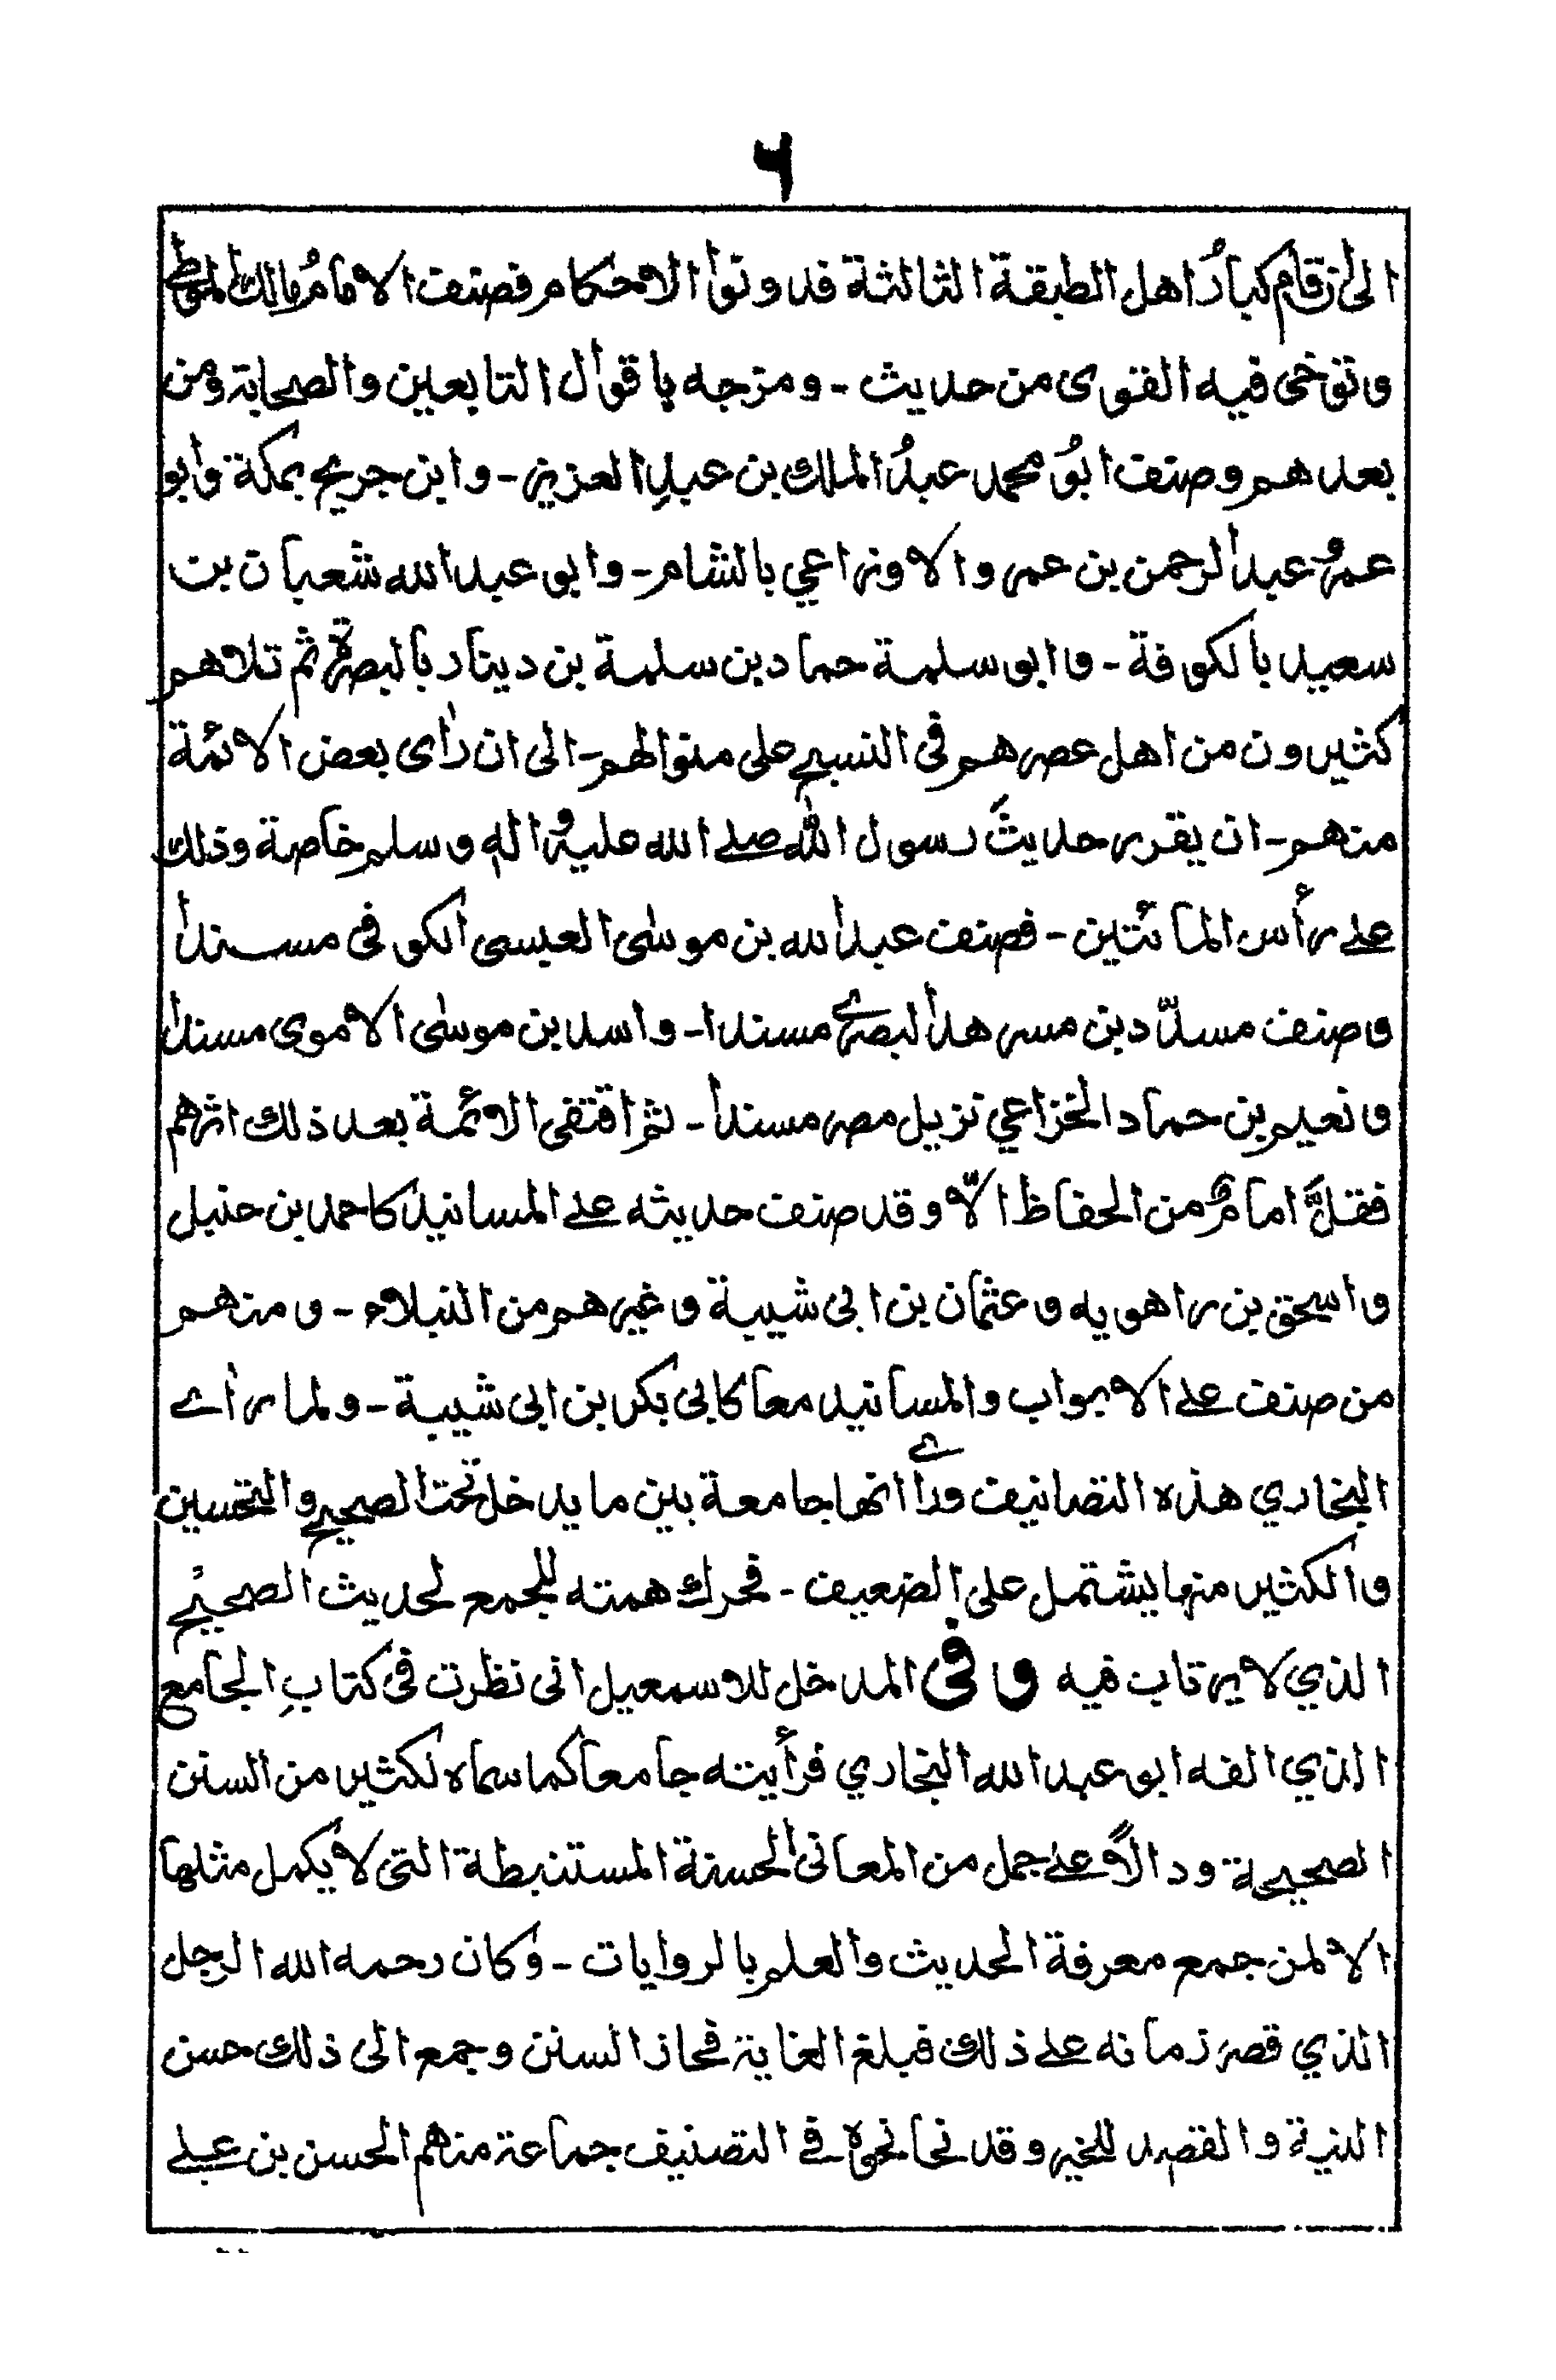 ٦
الى ان قام كبارُ اهل الطبقة الثالثة فدونوا الاحكام فصنف الامامُ مالك الموطأ
وتوخى فيه القوى من حديث - ومزجه باقوال التابعين والصحابة ومن
بعدهم وصنف ابوُ محمد عبدُ الملك بن عبدِ العزيز - وابن جريج بمكة وابو
عمرٍو عبد الرحمن بن عمر والاوزاعي بالشام - وابو عبد الله شعبان بن
سعيد بالكوفة - وابو سلمة حماد بن سلمة بن دينار بالبصرة ثم تلاهم
كثيرون من اهل عصرهم فى النسج على منوالهم - الى ان رأى بعض الائمة
منهم - ان يقرر حديثَ رسول الله صلے الله عليه و اله و سلم خاصة وذلك
علے رأس المائتين - فصنف عبد الله بن موسٰى العبسى الكوفى مسندا
وصنف مسدّد بن مسرهد البصرے مسندا - واسد بن موسٰى الاموى مسندا
ونعيم بن حماد الخزاعي نزيل مصر مسندا - ثم اقتفى الائمة بعد ذلك اثرهم
فقلَّ امامٌ من الحفاظ الّا وقد صنف حديثه علے المسانيد كاحمد بن حنبل
واسحق بن راهويه وعثمان بن ابى شيبة وغيرهم من النبلاء - ومنهم
من صنف علے الابواب والمسانيد معا كابى بكر بن ابى شيبة - ولما رأے
البخاري هذه التصانيف ورأے انها جامعة بين ما يدخل تحت الصحيح والتحسين
والكثير منها يشتمل على الضعيف - فحرك همته للجمع لحديث الصحيح
الذي لا يرتاب فيه وفى المدخل للاسمعيل انى نظرت فى كتابِ الجامع
الذي الفه ابو عبد الله البخاري فرأيته جامعا كما سماه لكثير من السنن
الصحيحة ودالًا علے جمل من المعانى الحسنة المستنبطة التى لا يكمل مثلها
الا لمن جمع معرفة الحديث والعلم بالروايات - وكان رحمه الله الرجل
الذي قصر زمانه علے ذلك فبلغ الغاية فحاز السنن وجمع الى ذلك حسن
النية والقصد للخير وقد نحا نحوه فے التصنيف جماعة منهم الحسن بن علے